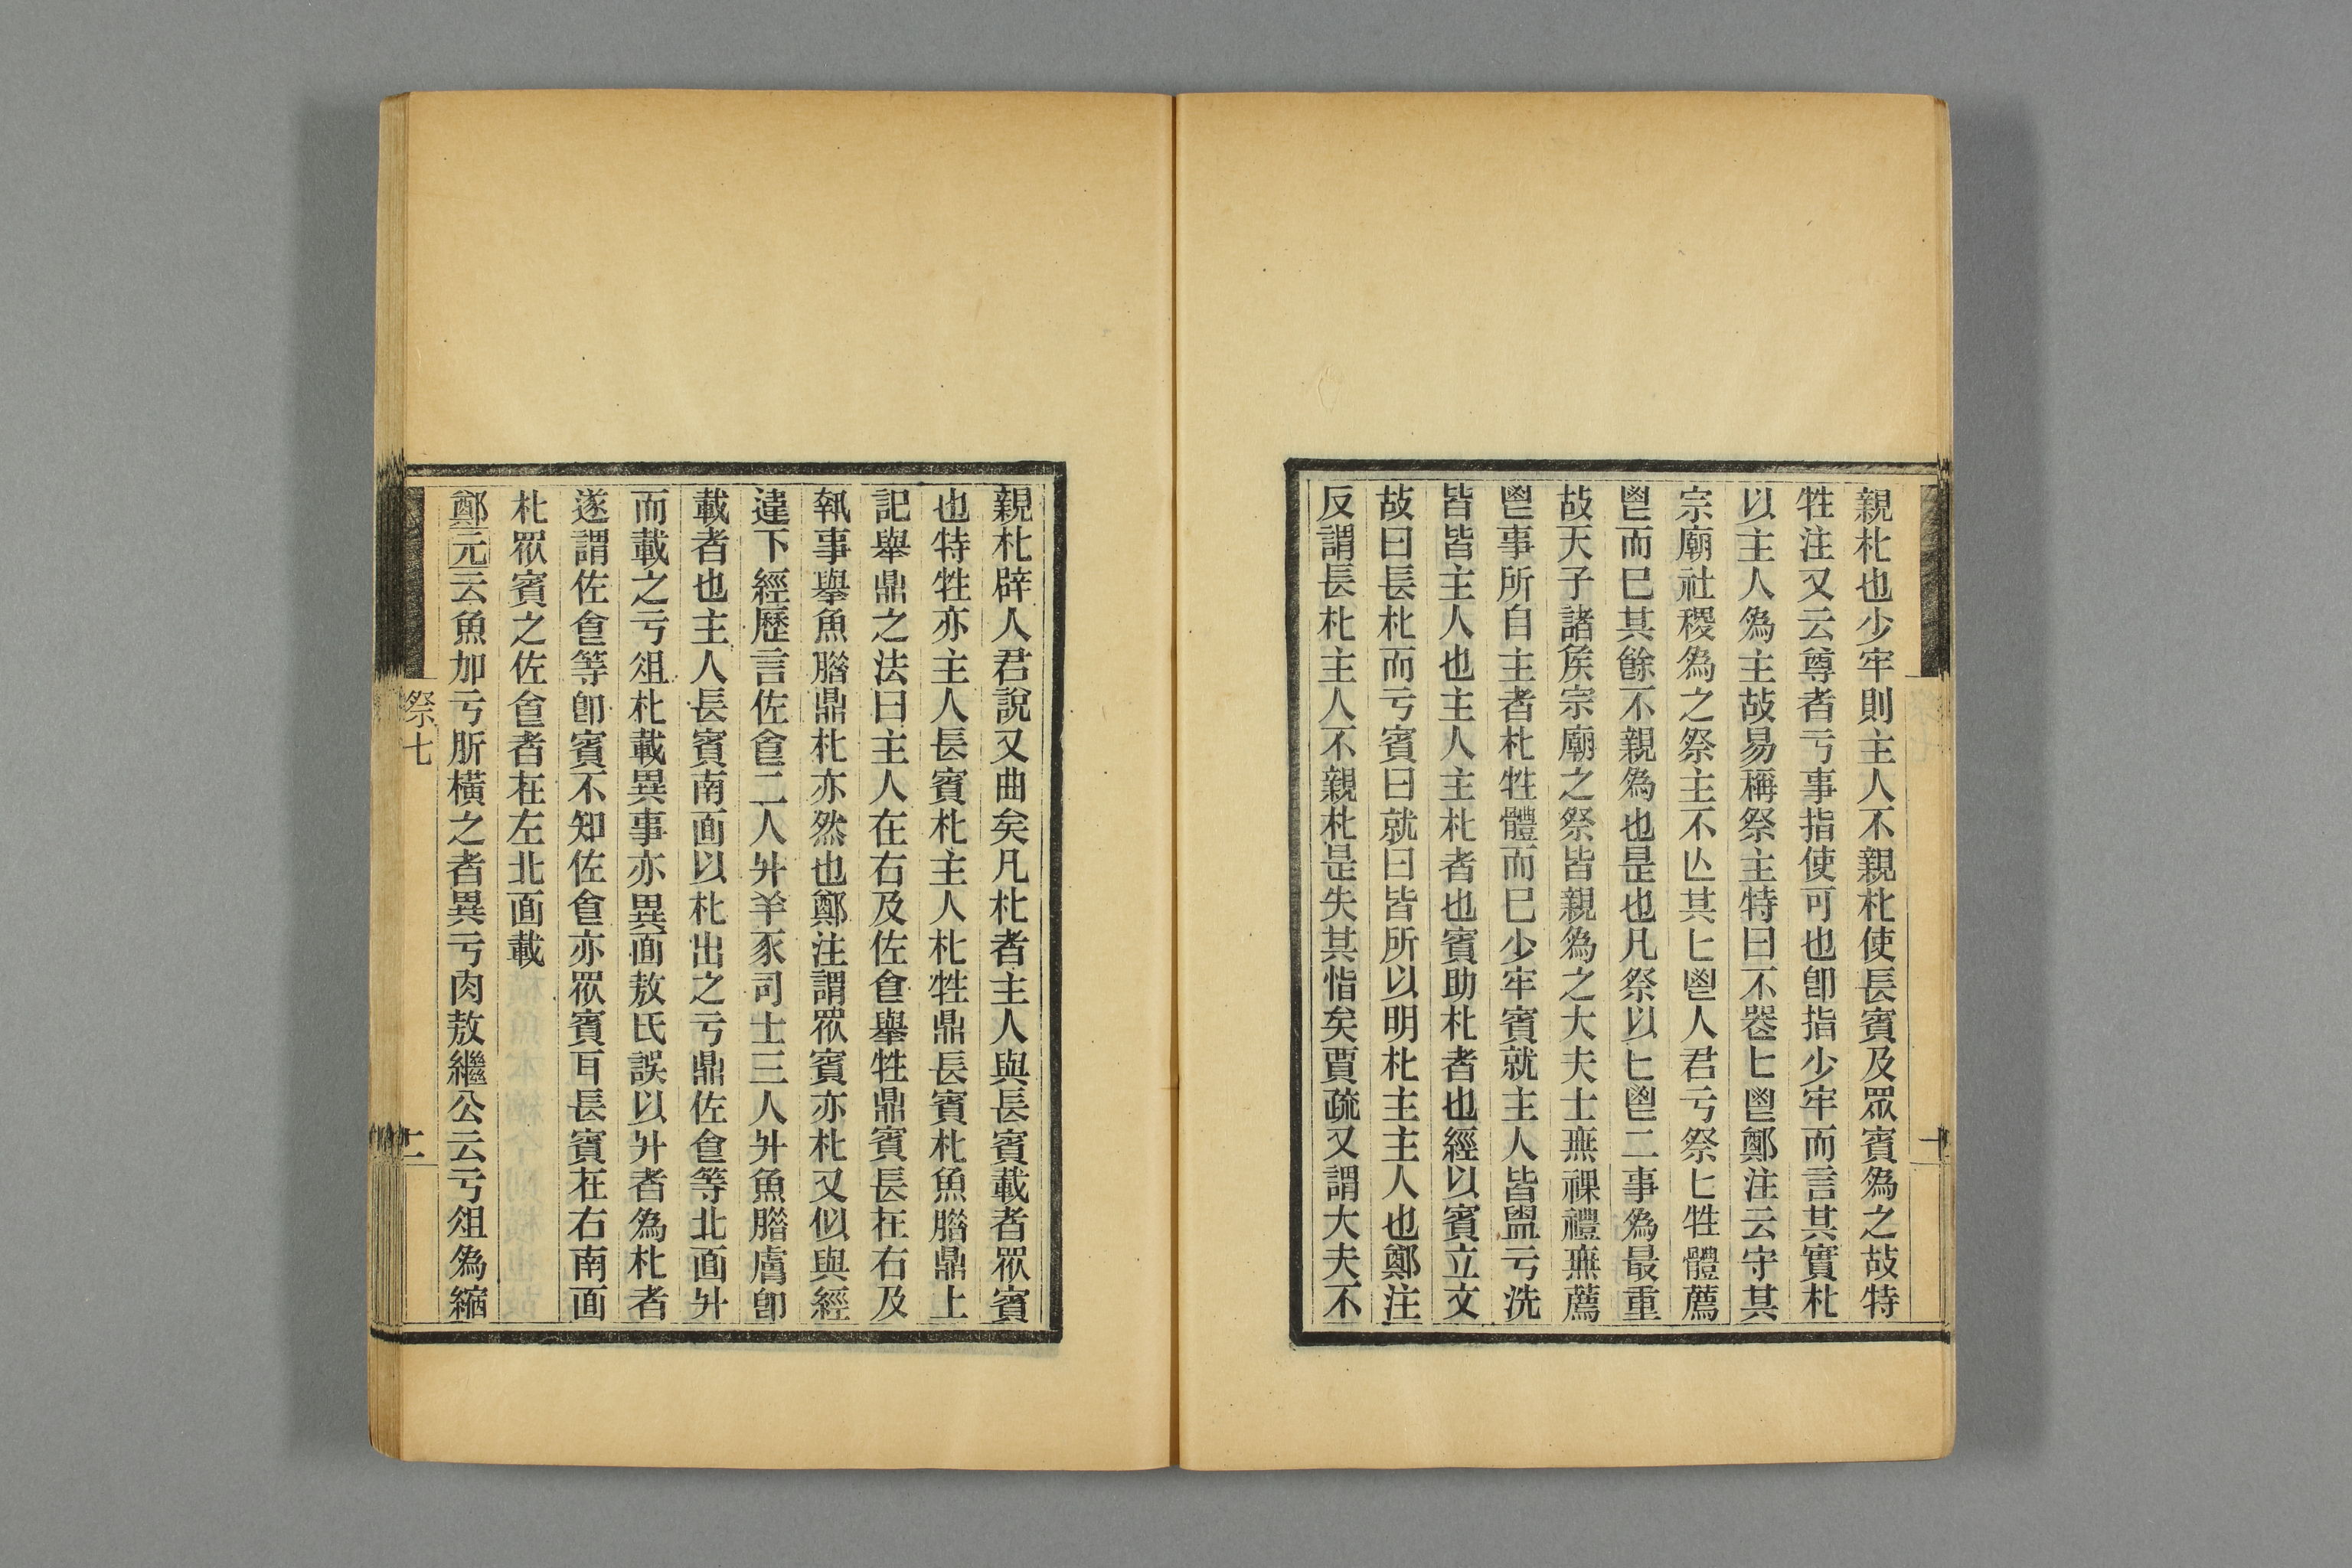 親朼也少牢則主人不親朼使長賓及眾賓爲之故特
牲注又云尊者亏事指使可也卽指少牢而言其實朼
以主人爲主故易稱祭主特曰不喪匕鬯鄭注云守其
宗廟社稷爲之祭主不亾其匕鬯人君亏祭匕牲體薦
鬯而巳其餘不親爲也是也凡祭以匕鬯二事爲最重
故天子諸矦宗廟之祭皆親爲之大夫士無祼禮無薦
鬯事所自主者朼牲體而巳少牢賓就主人皆盥亏洗
皆皆主人也主人主朼者也賓助朼者也經以賓立文
故曰長朼而亏賓曰就曰皆所以明朼主主人也鄭注
反謂長朼主人不親朼是失其恉矣賈疏又謂大夫不
親朼辟人君說又曲矣凡朼者主人與長賓載者眾賓
也特牲亦主人長賓朼主人朼牲鼎長賓朼魚腊鼎上
記舉鼎之法曰主人在右及佐食舉牲鼎賓長在右及
執事舉魚腊鼎朼亦然也鄭注謂眾賓亦朼又似與經
違下經歷言佐食二人升羊豕司士三人升魚腊膚卽
載者也主人長賓南面以朼出之亏鼎佐食等北面升
而載之亏俎朼載異事亦異面敖氏誤以升者爲朼者
遂謂佐食等卽賓不知佐食亦眾賓耳長賓在右南面
朼眾賓之佐食者在左北面載
鄭元云魚加亏肵橫之者異亏肉敖繼公云亏俎爲縮
祭七
二